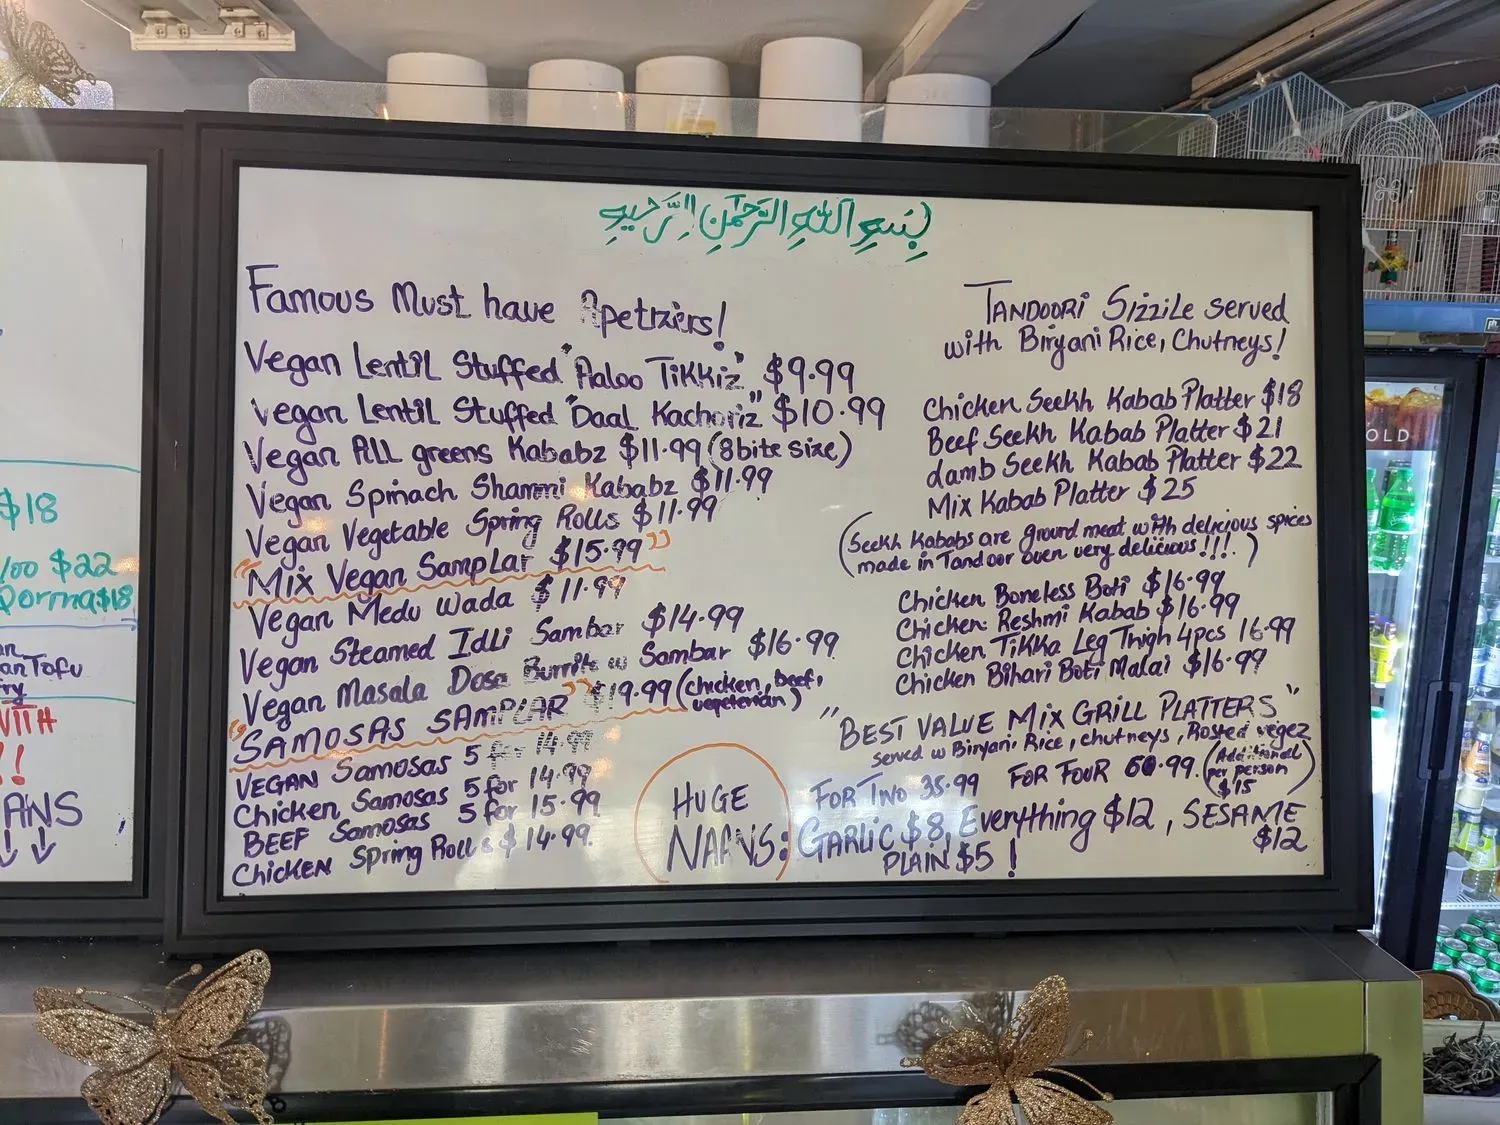 بِسْمِ اللهِ الرَّحْمٰنِ الرَّحِيمِ
Famous Must have Apetizers!
Vegan Lentil Stuffed "Aaloo Tikkiz" $9.99
Vegan Lentil Stuffed "Daal Kachoriz" $10.99
Vegan All greens Kababz $11.99 (8 bite size)
Vegan Spinach Shammi Kababz $11.99
Vegan Vegetable Spring Rolls $11.99
"Mix Vegan Samplar $15.99"
Vegan Medu Wada $11.99
Vegan Steamed Idli Sambar $14.99
Vegan Masala Dosa Burrito w Sambar $16.99
"SAMOSAS SAMPLAR" $19.99 (chicken, beef, vegeterian)
VEGAN Samosas 5 for 14.99
Chicken Samosas 5 for 14.99
BEEF Samosas 5 for 15.99
Chicken Spring Rolls $14.99
TANDOORI Sizzile served
with Biryani Rice, Chutneys!
Chicken Seekh Kabab Platter $18
Beef Seekh Kabab Platter $21
Lamb Seekh Kabab Platter $22
Mix Kabab Platter $25
(Seekh Kababs are ground meat with delicious spices
made in Tandoor oven very delicious!!!.)
Chicken Boneless Boti $16.99
Chicken Reshmi Kabab $16.99
Chicken Tikka Leg Thigh 4pcs 16.99
Chicken Bihari Boti Malai $16.99
"BEST VALUE MIX GRILL PLATTERS"
served w Biryani Rice, chutneys, Rosted vegez
FOR TWO 35.99 FOR FOUR 60.99 (Additional per person $15)
HUGE
NAANS: GARLIC $8, Everything $12, SESAME $12
PLAIN $5!
$18
$22
Qorma $18
Tofu
WITH
!!
OLD